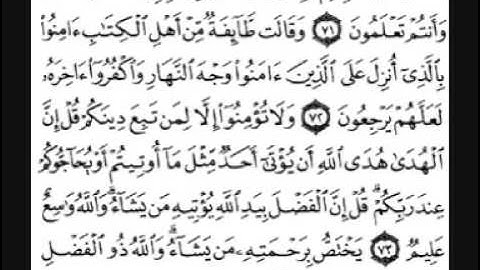 وَأَنتُمْ تَعْلَمُونَ ٧١ وَقَالَت طَّآئِفَةٌ مِّنْ أَهْلِ ٱلْكِتَٰبِ ءَامِنُوا۟
بِٱلَّذِىٓ أُنزِلَ عَلَى ٱلَّذِينَ ءَامَنُوا۟ وَجْهَ ٱلنَّهَارِ وَٱكْفُرُوٓا۟ ءَاخِرَهُۥ
لَعَلَّهُمْ يَرْجِعُونَ ٧٢ وَلَا تُؤْمِنُوٓا۟ إِلَّا لِمَن تَبِعَ دِينَكُمْ قُلْ إِنَّ
ٱلْهُدَىٰ هُدَى ٱللَّهِ أَن يُؤْتَىٰٓ أَحَدٌ مِّثْلَ مَآ أُوتِيتُمْ أَوْ يُحَآجُّوكُمْ
عِندَ رَبِّكُمْ ۗ قُلْ إِنَّ ٱلْفَضْلَ بِيَدِ ٱللَّهِ يُؤْتِيهِ مَن يَشَآءُ ۗ وَٱللَّهُ وَٰسِعٌ
عَلِيمٌ ٧٣ يَخْتَصُّ بِرَحْمَتِهِۦ مَن يَشَآءُ ۗ وَٱللَّهُ ذُو ٱلْفَضْلِ